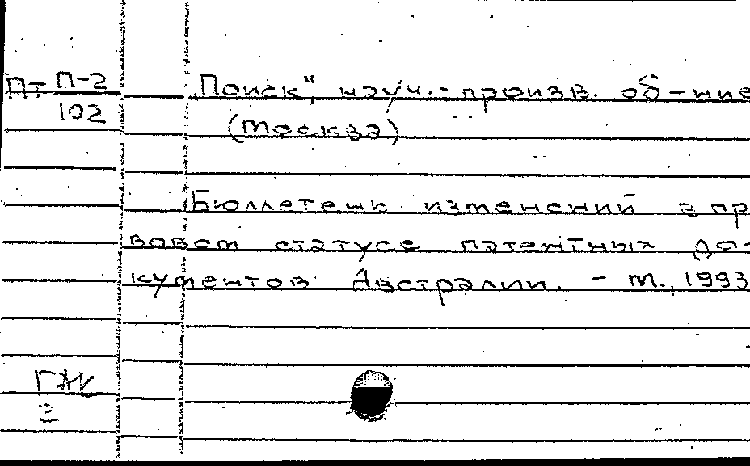 П-2
102
Поиск", науч.-произв. об-ние
(Москва)
Бюллетень изменений в пр
вовом статусе патентных до-
кументов Австралии. - М., 1993